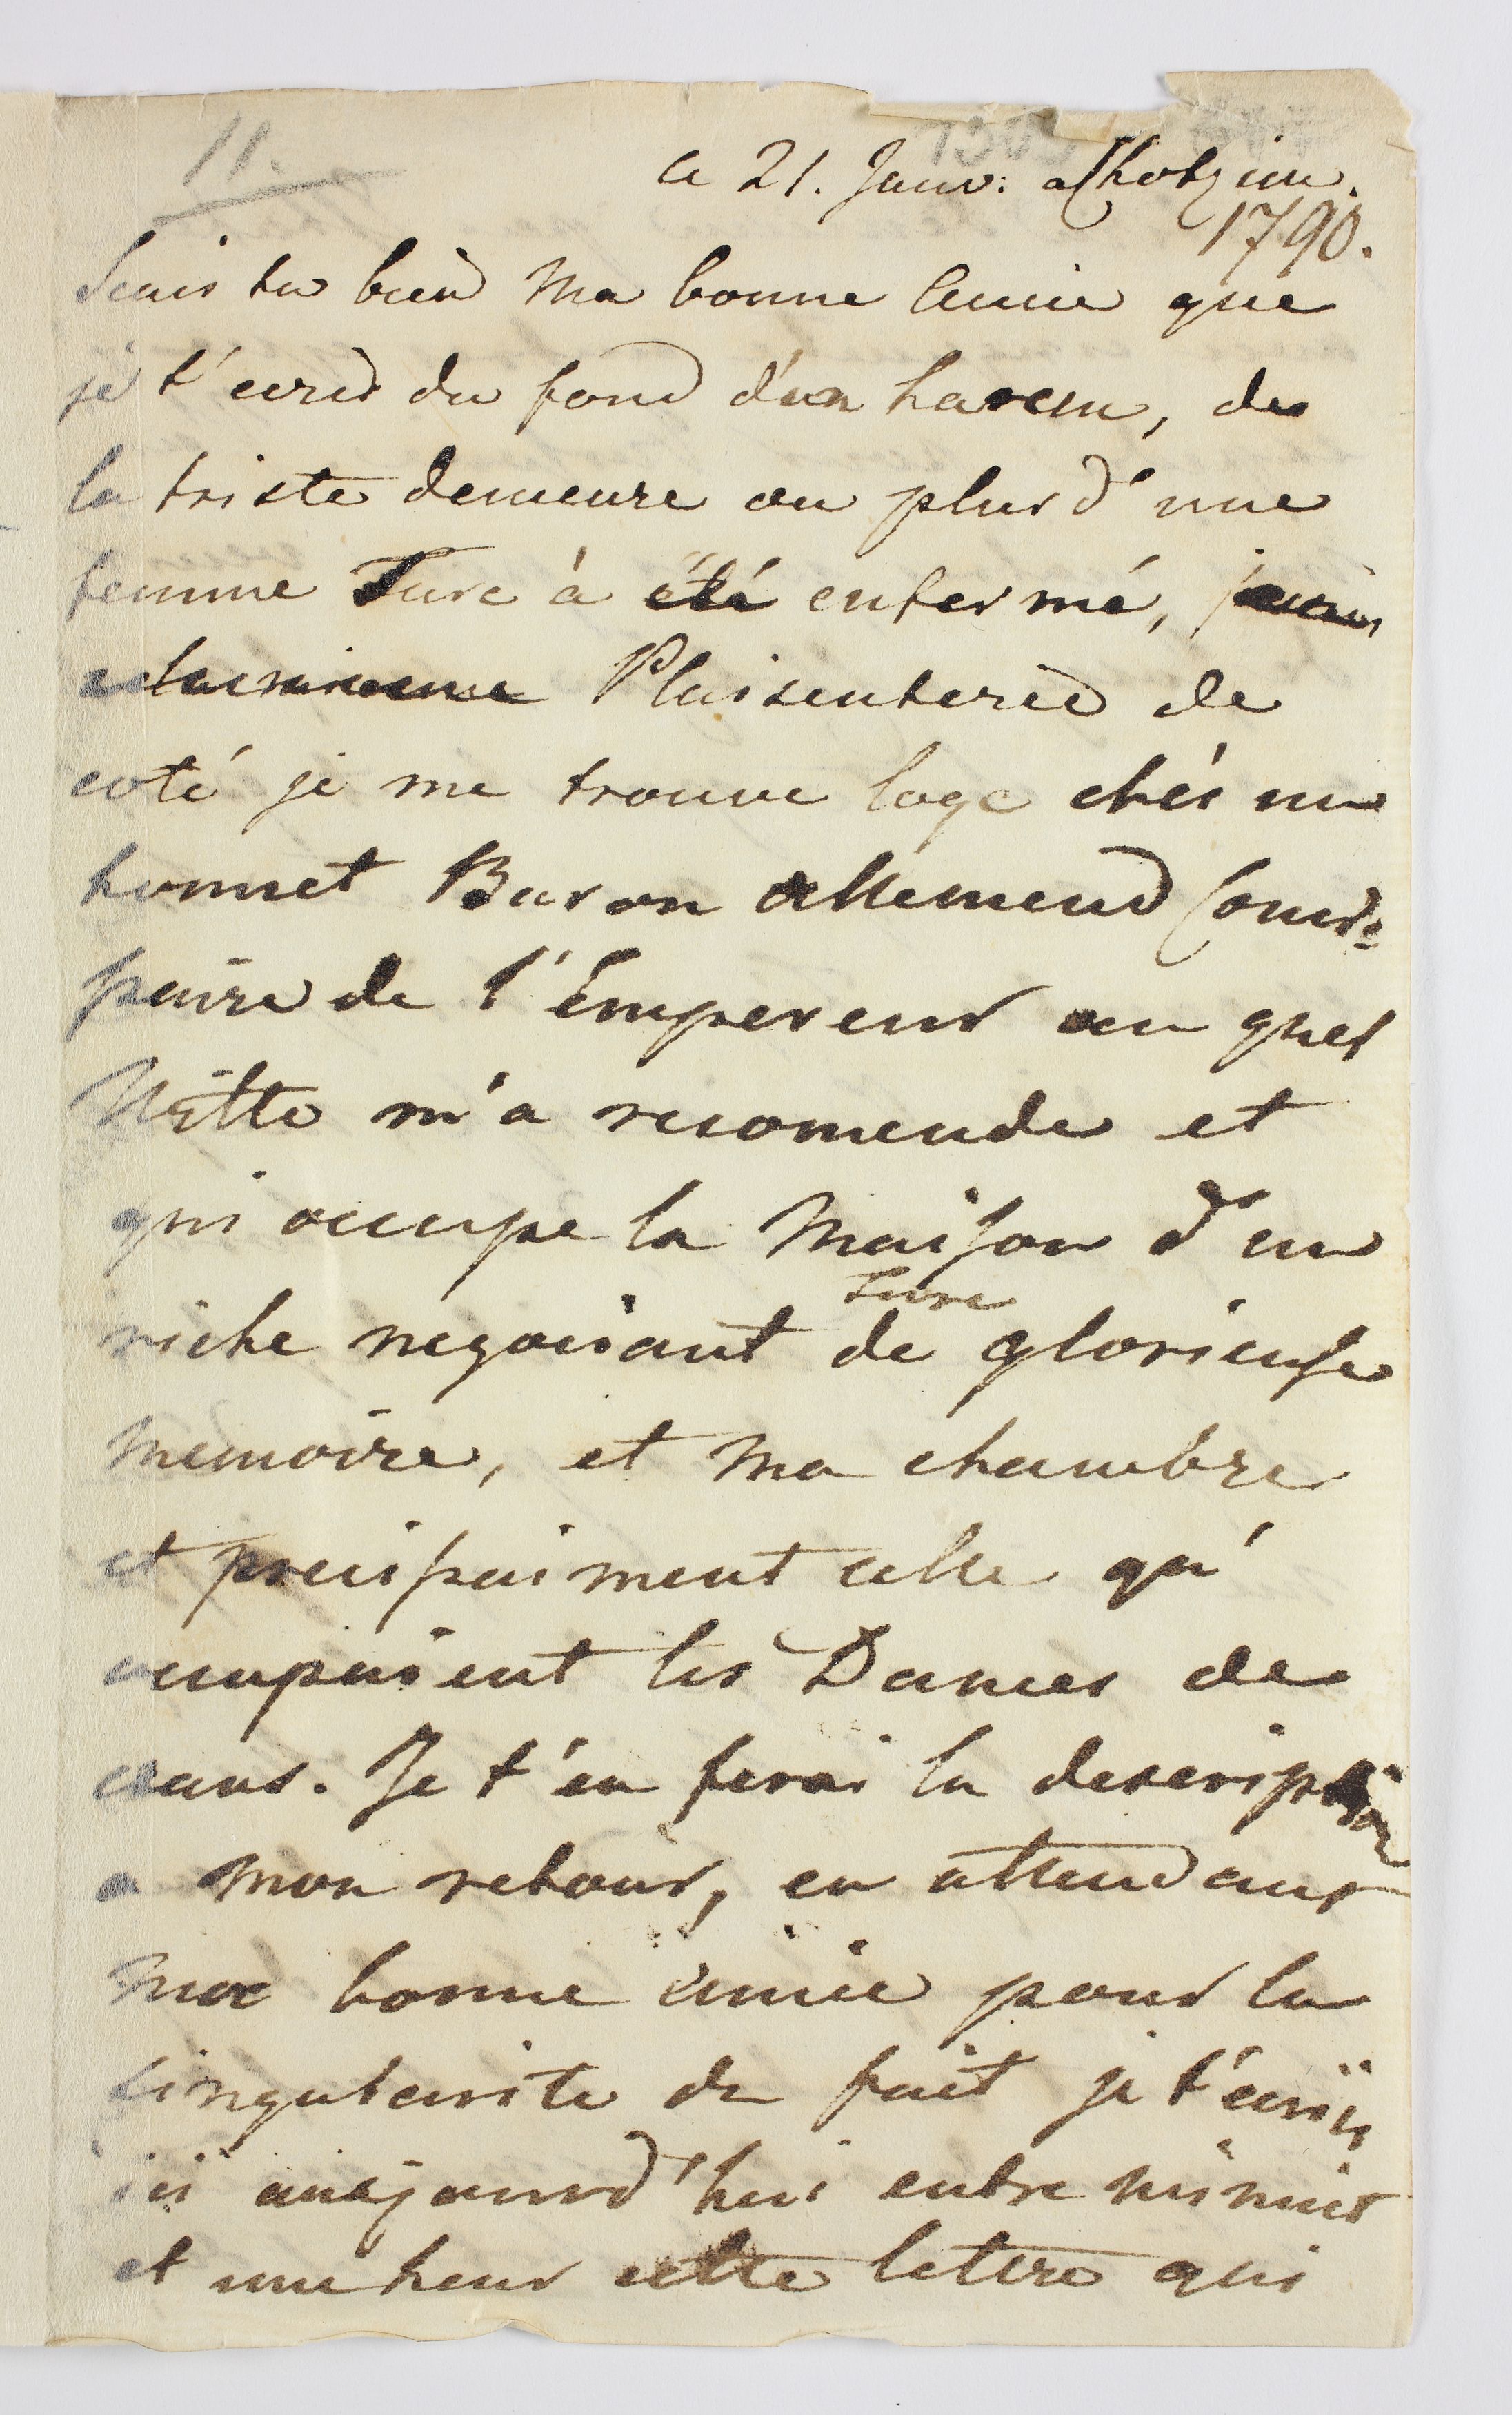 11.
Ce 21. Janv: a Chotzim.
1790.
Scais tu bien Ma bonne Amie que
je t'ecris du fond d'un harem, de
la triste demeure ou plus d'une
femme Turc à été enfermé,
Plaisenterie de
coté je me trouve logé chés un
honnet Baron allemend Com̃
paire de l'Empereur au quel
Witte m'a recomende et
qui occupe la Maison d'un
riche negociant Turc de glorieuse
Memoire, et Ma chambre
et precisaiment celle qu'
occupaient les Dames de
ceans. Je t'en ferai la description
a mon retour, en attendant
Ma bonne amie pour la
singularite du fait je t'ecris
ici aujourd'hui entre minuit
et une heur cette lettre qui